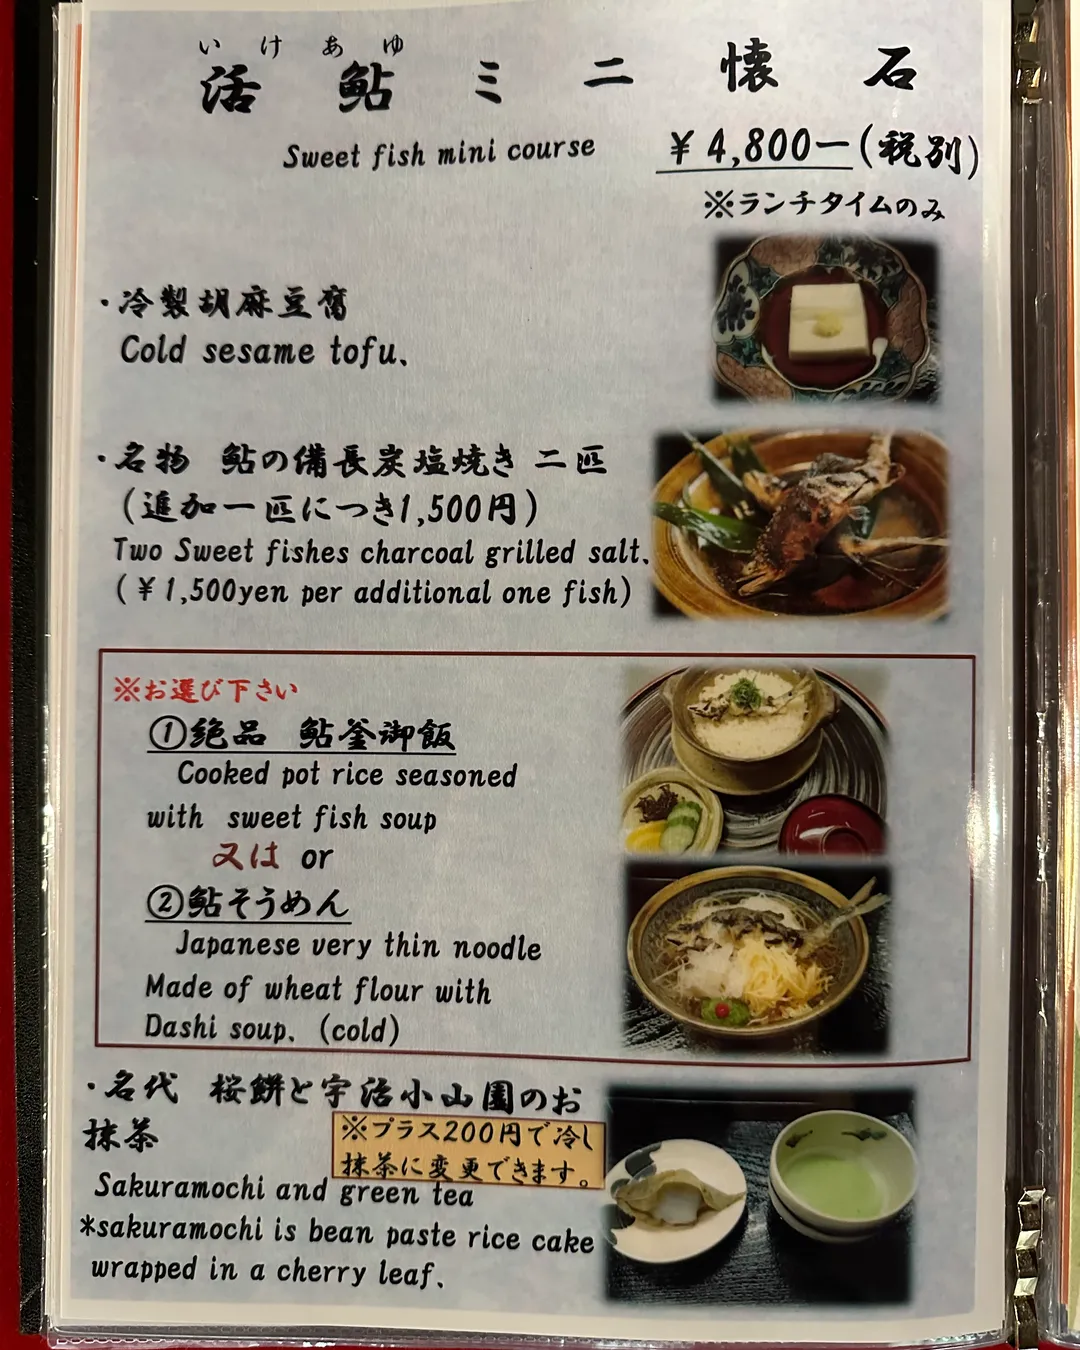 いけあゆ
活鮎ミニ懐石
Sweet fish mini course
¥4,800ー(税別)
※ランチタイムのみ
・冷製胡麻豆腐
Cold sesame tofu.
・名物 鮎の備長炭塩焼き 二匹
(追加一匹につき1,500円)
Two Sweet fishes charcoal grilled salt.
(¥1,500yen per additional one fish)
※お選び下さい
①絶品 鮎釜御飯
Cooked pot rice seasoned
with sweet fish soup
又は or
②鮎そうめん
Japanese very thin noodle
Made of wheat flour with
Dashi soup. (cold)
・名代 桜餅と宇治小山園のお
抹茶
※プラス200円で冷し
抹茶に変更できます。
Sakuramochi and green tea
*sakuramochi is bean paste rice cake
wrapped in a cherry leaf.